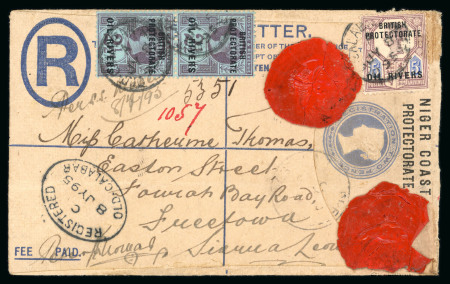 R
LETTER.
BRITISH
PROTECTORATE
OIL RIVERS
BRITISH
PROTECTORATE
OIL RIVERS
BRITISH
PROTECTORATE
OIL RIVERS
5351
1057
Miss Catherine Thomas,
Easton Street
Bay Road
Freetown
Sierra Leone
NIGER COAST
PROTECTORATE
REGISTERED
C
8 JY 95
OLD CALABAR
FEE PAID.